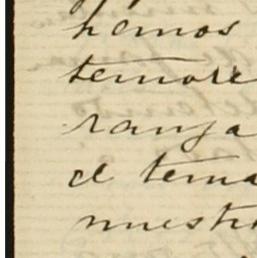 hamos
temore
ranza
el tema
nuestr